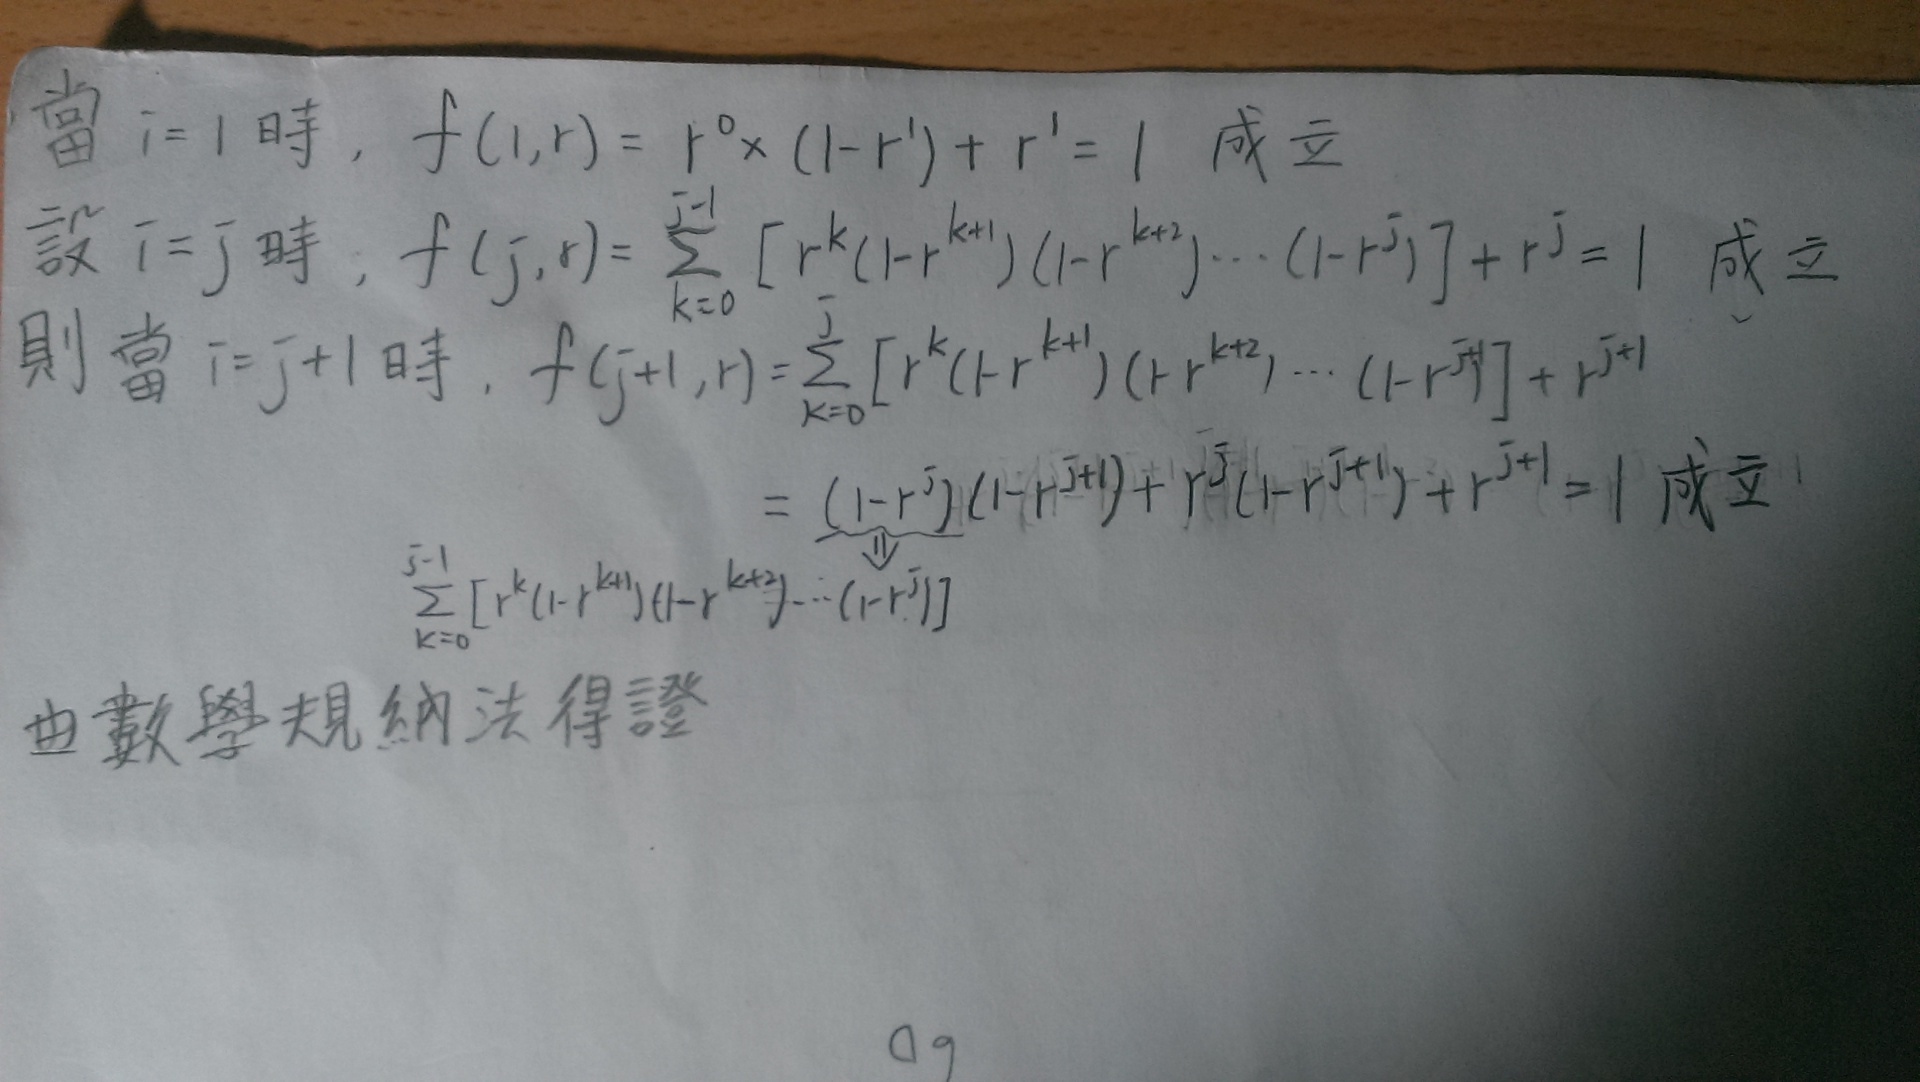 當 i=1 時, f(1,r) = r⁰×(1-r¹)+r¹=1 成立
設 i=j 時, f(j,r)= \sum_{k=0}^{j-1} [r^k(1-r^{k+1})(1-r^{k+2})⋯(1-r^j)]+r^j=1 成立
則當 i=j+1 時, f(j+1,r)= \sum_{k=0}^{j} [r^k(1-r^{k+1})(1-r^{k+2})⋯(1-r^{j+1})]+r^{j+1}
= (1-r^j)(1-r^{j+1})+r^j(1-r^{j+1})+r^{j+1}=1 成立
⇓
\sum_{k=0}^{j-1} [r^k(1-r^{k+1})(1-r^{k+2})⋯(1-r^j)]
由數學規納法得證